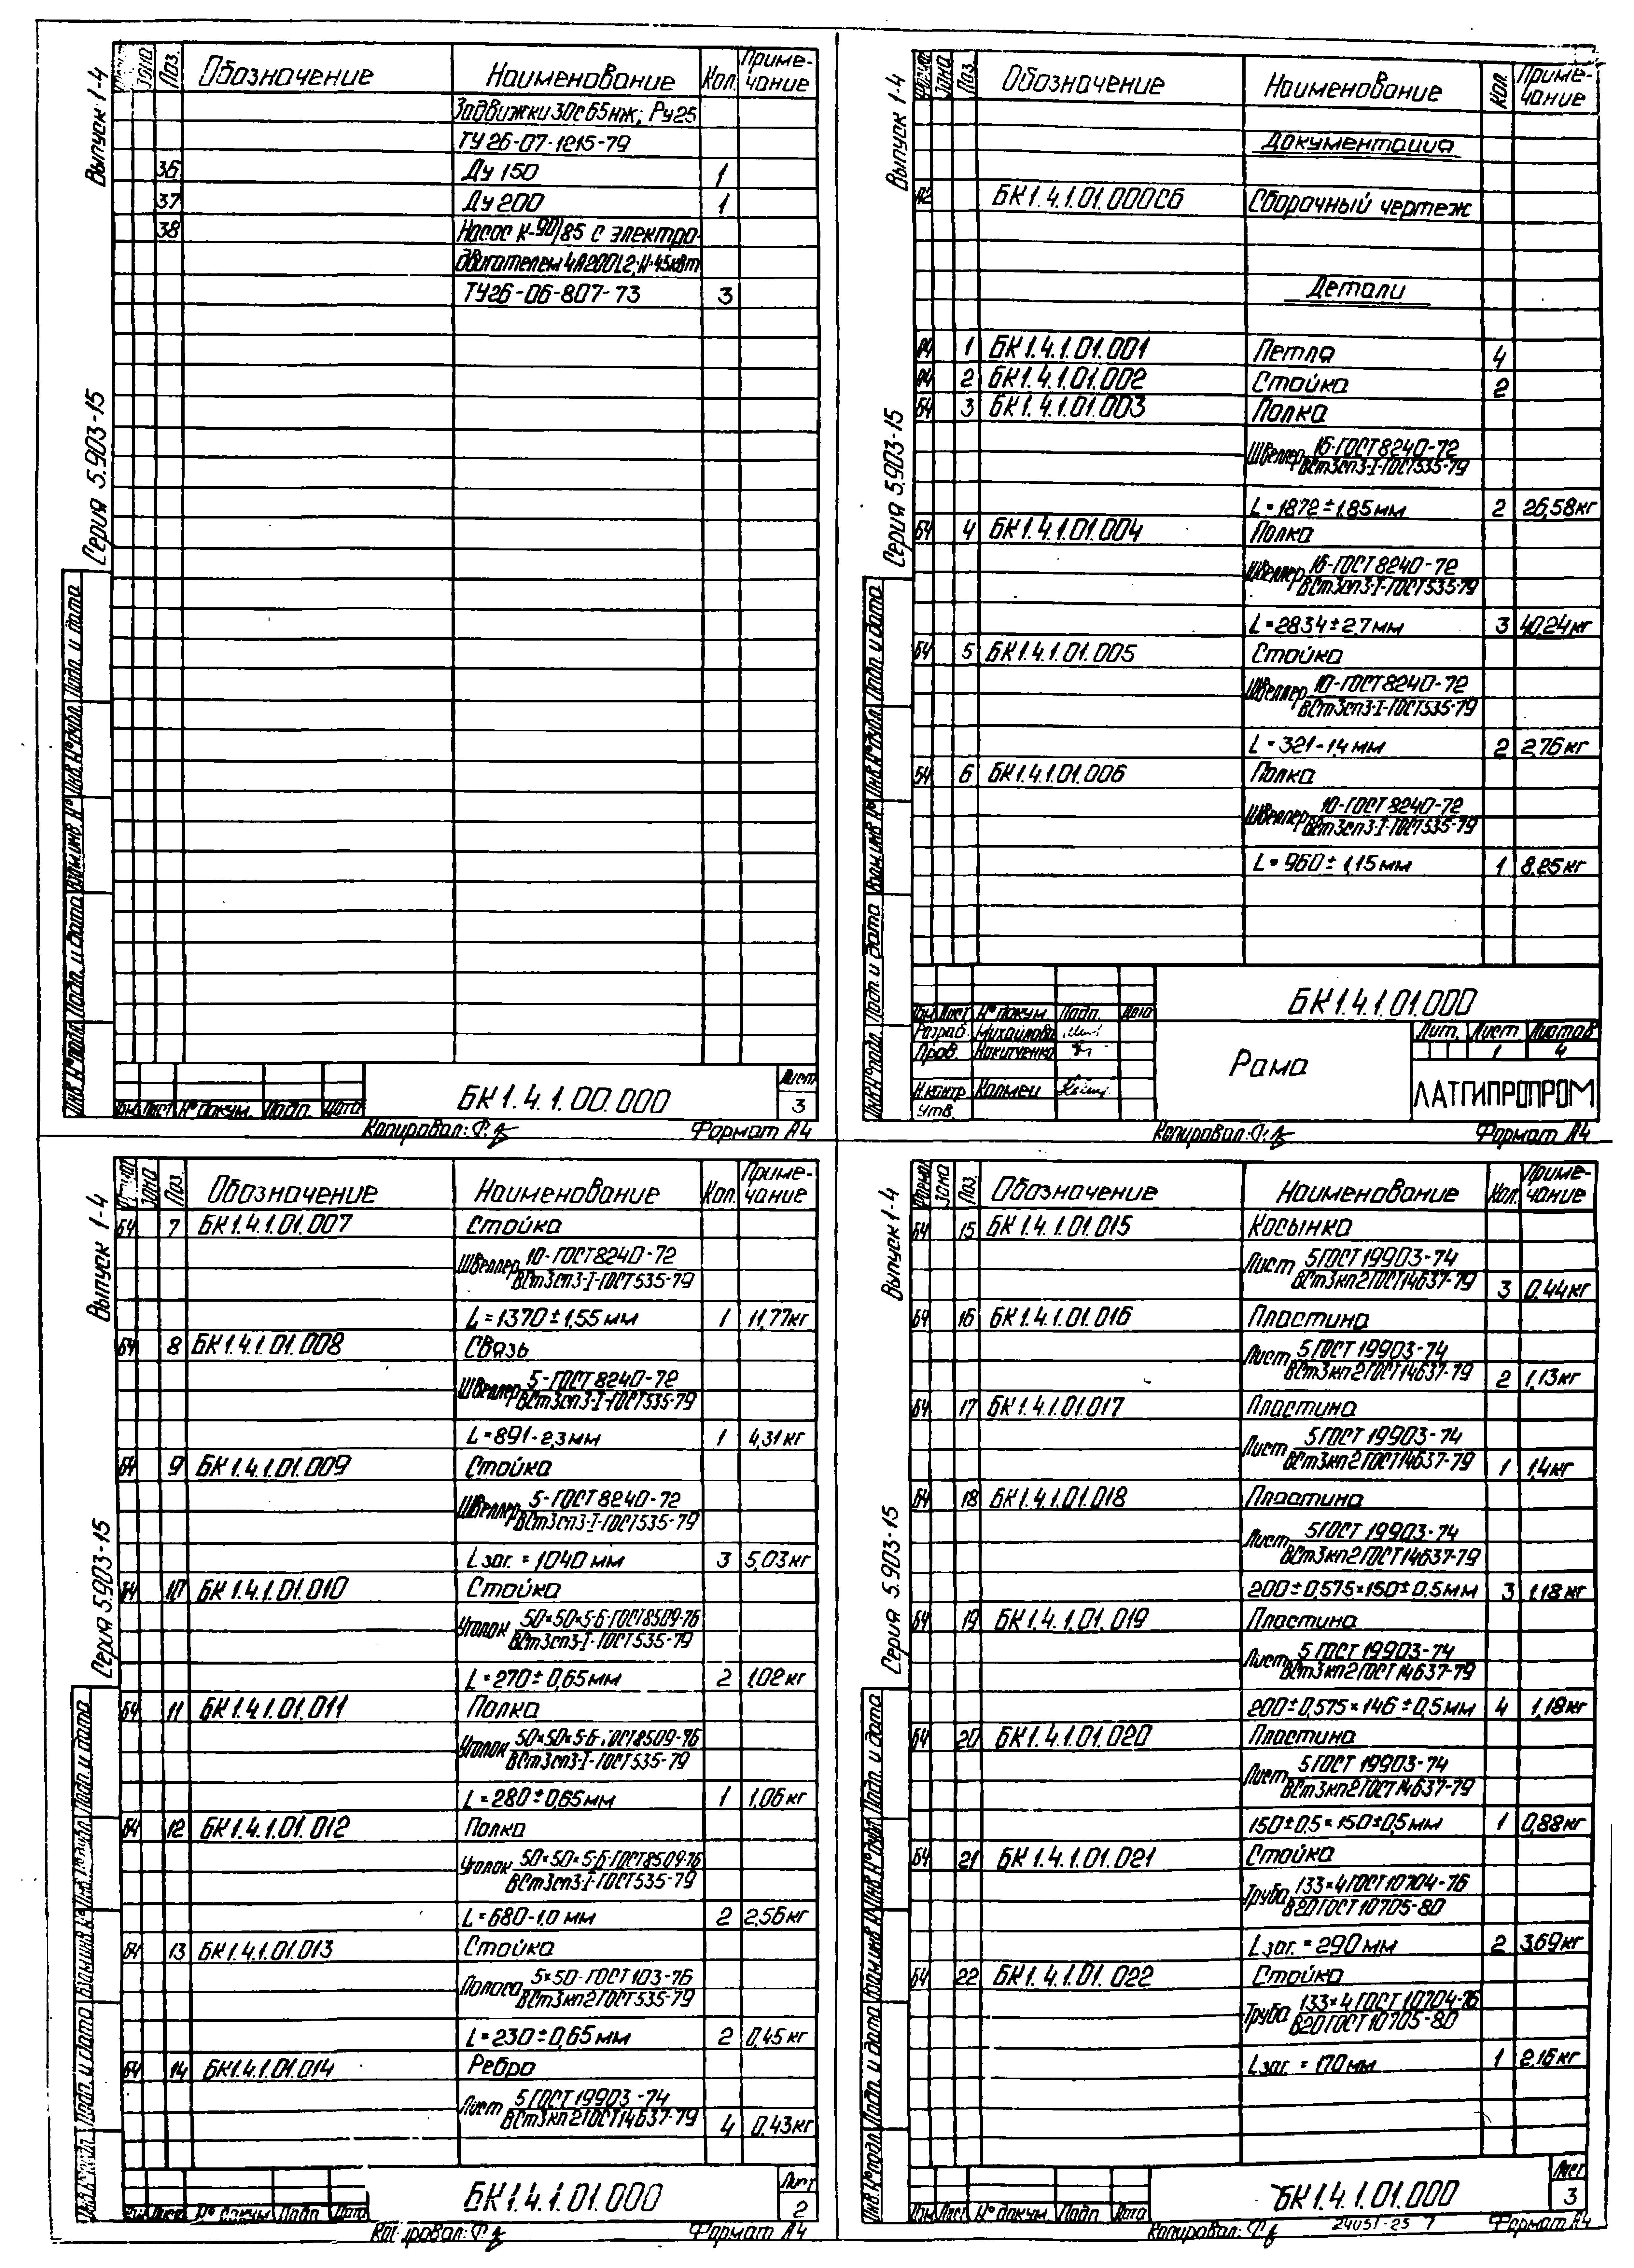 Выпуск 1-4
Серия 5.903-15
Зона Поз. Обозначение Наименование Кол. Примечание
Задвижки 30с65нж; Ру25
ТУ26-07-1215-79
36 Ду 150 1
37 Ду 200 1
38 Насос К-90/85 с электро-
двигателем 4А200L2; N-45кВт
ТУ26-06-807-73 3
Инв.№подл. Подп. и дата Взам.инв.№ Инв.№дубл. Подп. и дата
Изм. Лист № докум. Подп. Дата
БК1.4.1.00.000
Лист
3
Копировал:
Формат А4
Выпуск 1-4
Серия 5.903-15
Формат Зона Поз. Обозначение Наименование Кол. Примечание
Документация
А2 БК1.4.1.01.000СБ Сборочный чертеж
Детали
А4 1 БК1.4.1.01.001 Петля 4
А4 2 БК1.4.1.01.002 Стойка 2
БЧ 3 БК1.4.1.01.003 Полка
Швеллер 16-ГОСТ8240-72
ВСт3сп3-I-ГОСТ535-79
L=1872±1,85мм 2 26,58кг
БЧ 4 БК1.4.1.01.004 Полка
Швеллер 16-ГОСТ8240-72
ВСт3сп3-I-ГОСТ535-79
L=2834±2,7мм 3 40,24кг
БЧ 5 БК1.4.1.01.005 Стойка
Швеллер 10-ГОСТ8240-72
ВСт3сп3-I-ГОСТ535-79
L=321-1,4мм 2 2,76кг
БЧ 6 БК1.4.1.01.006 Полка
Швеллер 10-ГОСТ8240-72
ВСт3сп3-I-ГОСТ535-79
L=960±1,15мм 1 8,25кг
Инв.№подл. Подп. и дата Взам.инв.№ Инв.№дубл. Подп. и дата
Изм. Лист № докум. Подп. Дата
Разраб. Михайлова
Пров. Никитченко
Н.контр. Калмен
Утв.
БК1.4.1.01.000
Рама
Лит. Лист Листов
1 4
ЛАТГИПРОПРОМ
Копировал:
Формат А4
Выпуск 1-4
Серия 5.903-15
Формат Зона Поз. Обозначение Наименование Кол. Примечание
БЧ 7 БК1.4.1.01.007 Стойка
Швеллер 10-ГОСТ8240-72
ВСт3сп3-I-ГОСТ535-79
L=1370±1,55мм 1 11,77кг
БЧ 8 БК1.4.1.01.008 Связь
Швеллер 5-ГОСТ8240-72
ВСт3сп3-I-ГОСТ535-79
L=891-2,3мм 1 4,31кг
БЧ 9 БК1.4.1.01.009 Стойка
Швеллер 5-ГОСТ8240-72
ВСт3сп3-I-ГОСТ535-79
Lзаг.=1040мм 3 5,03кг
БЧ 10 БК1.4.1.01.010 Стойка
Уголок 50×50×5-Б-ГОСТ8509-76
ВСт3сп3-I-ГОСТ535-79
L=270±0,65мм 2 1,02кг
БЧ 11 БК1.4.1.01.011 Полка
Уголок 50×50×5-Б-ГОСТ8509-76
ВСт3сп3-I-ГОСТ535-79
L=280±0,65мм 1 1,06кг
БЧ 12 БК1.4.1.01.012 Полка
Уголок 50×50×5-Б-ГОСТ8509-76
ВСт3сп3-I-ГОСТ535-79
L=680-1,0мм 2 2,56кг
БЧ 13 БК1.4.1.01.013 Стойка
Полоса 5×50-ГОСТ103-76
ВСт3кп2ГОСТ535-79
L=230±0,65мм 2 0,45кг
БЧ 14 БК1.4.1.01.014 Ребро
Лист 5ГОСТ19903-74
ВСт3кп2ГОСТ14637-79
4 0,43кг
Инв.№подл. Подп. и дата Взам.инв.№ Инв.№дубл. Подп. и дата
Изм. Лист № докум. Подп. Дата
БК1.4.1.01.000
Лист
2
Копировал:
Формат А4
Выпуск 1-4
Серия 5.903-15
Формат Зона Поз. Обозначение Наименование Кол. Примечание
БЧ 15 БК1.4.1.01.015 Косынка
Лист 5ГОСТ19903-74
ВСт3кп2ГОСТ14637-79
3 0,44кг
БЧ 16 БК1.4.1.01.016 Пластина
Лист 5ГОСТ19903-74
ВСт3кп2ГОСТ14637-79
2 1,13кг
БЧ 17 БК1.4.1.01.017 Пластина
Лист 5ГОСТ19903-74
ВСт3кп2ГОСТ14637-79
1 1,4кг
БЧ 18 БК1.4.1.01.018 Пластина
Лист 5ГОСТ19903-74
ВСт3кп2ГОСТ14637-79
200±0,575×150±0,5мм 3 1,18кг
БЧ 19 БК1.4.1.01.019 Пластина
Лист 5ГОСТ19903-74
ВСт3кп2ГОСТ14637-79
200±0,575×146±0,5мм 4 1,18кг
БЧ 20 БК1.4.1.01.020 Пластина
Лист 5ГОСТ19903-74
ВСт3кп2ГОСТ14637-79
150±0,5×150±0,5мм 1 0,88кг
БЧ 21 БК1.4.1.01.021 Стойка
Труба 133×4ГОСТ10704-76
В20ГОСТ10705-80
Lзаг.=290мм 2 3,69кг
БЧ 22 БК1.4.1.01.022 Стойка
Труба 133×4ГОСТ10704-76
В20ГОСТ10705-80
Lзаг.=170мм 1 2,16кг
Инв.№подл. Подп. и дата Взам.инв.№ Инв.№дубл. Подп. и дата
Изм. Лист № докум. Подп. Дата
БК1.4.1.01.000
Лист
3
Копировал:
24051-25 7
Формат А4